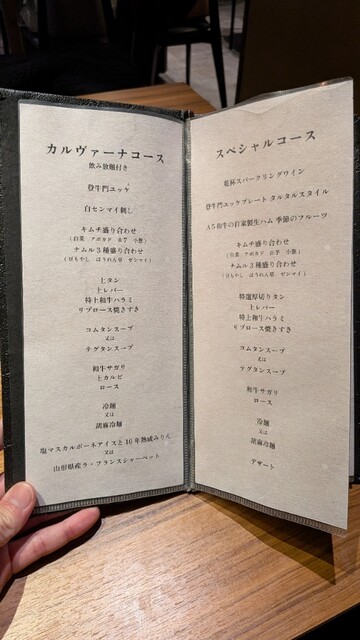 カルヴァーナコース
飲み放題付き
登牛門ユッケ
白センマイ刺し
キムチ盛り合わせ
(白菜 アボカド 長芋 小葱)
ナムル3種盛り合わせ
(豆もやし ほうれん草 ゼンマイ)
上タン
上レバー
特上和牛ハラミ
リブロース焼きすき
コムタンスープ
又は
テグタンスープ
和牛サガリ
上カルビ
ロース
冷麺
又は
胡麻冷麺
塩マスカルポーネアイスと16年熟成みりん
又は
山形県産ラ・フランスシャーベット
スペシャルコース
乾杯スパークリングワイン
登牛門ユッケプレート タルタルスタイル
A5和牛の自家製生ハム 季節のフルーツ
キムチ盛り合わせ
(白菜 アボカド 長芋 小葱)
ナムル3種盛り合わせ
(豆もやし ほうれん草 ゼンマイ)
特選厚切りタン
上レバー
特上和牛ハラミ
リブロース焼きすき
コムタンスープ
又は
テグタンスープ
和牛サガリ
ロース
冷麺
又は
胡麻冷麺
デザート